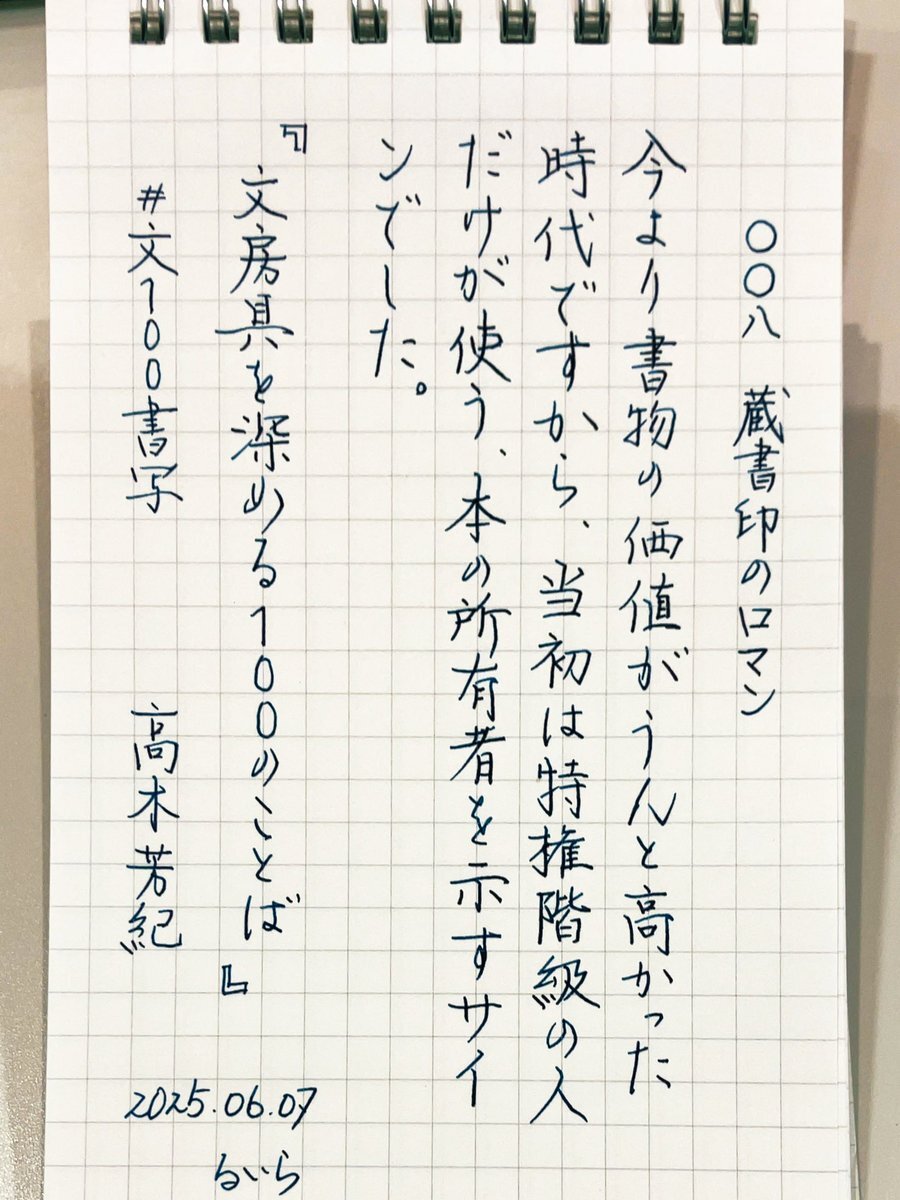 〇〇八 蔵書印のロマン
今より書物の価値がうんと高かった
時代ですから、当初は特権階級の人
だけが使う、本の所有者を示すサイ
ンでした。
『文房具を深める100のことば』
#文100書写 高木芳紀
2025.06.07
るいら